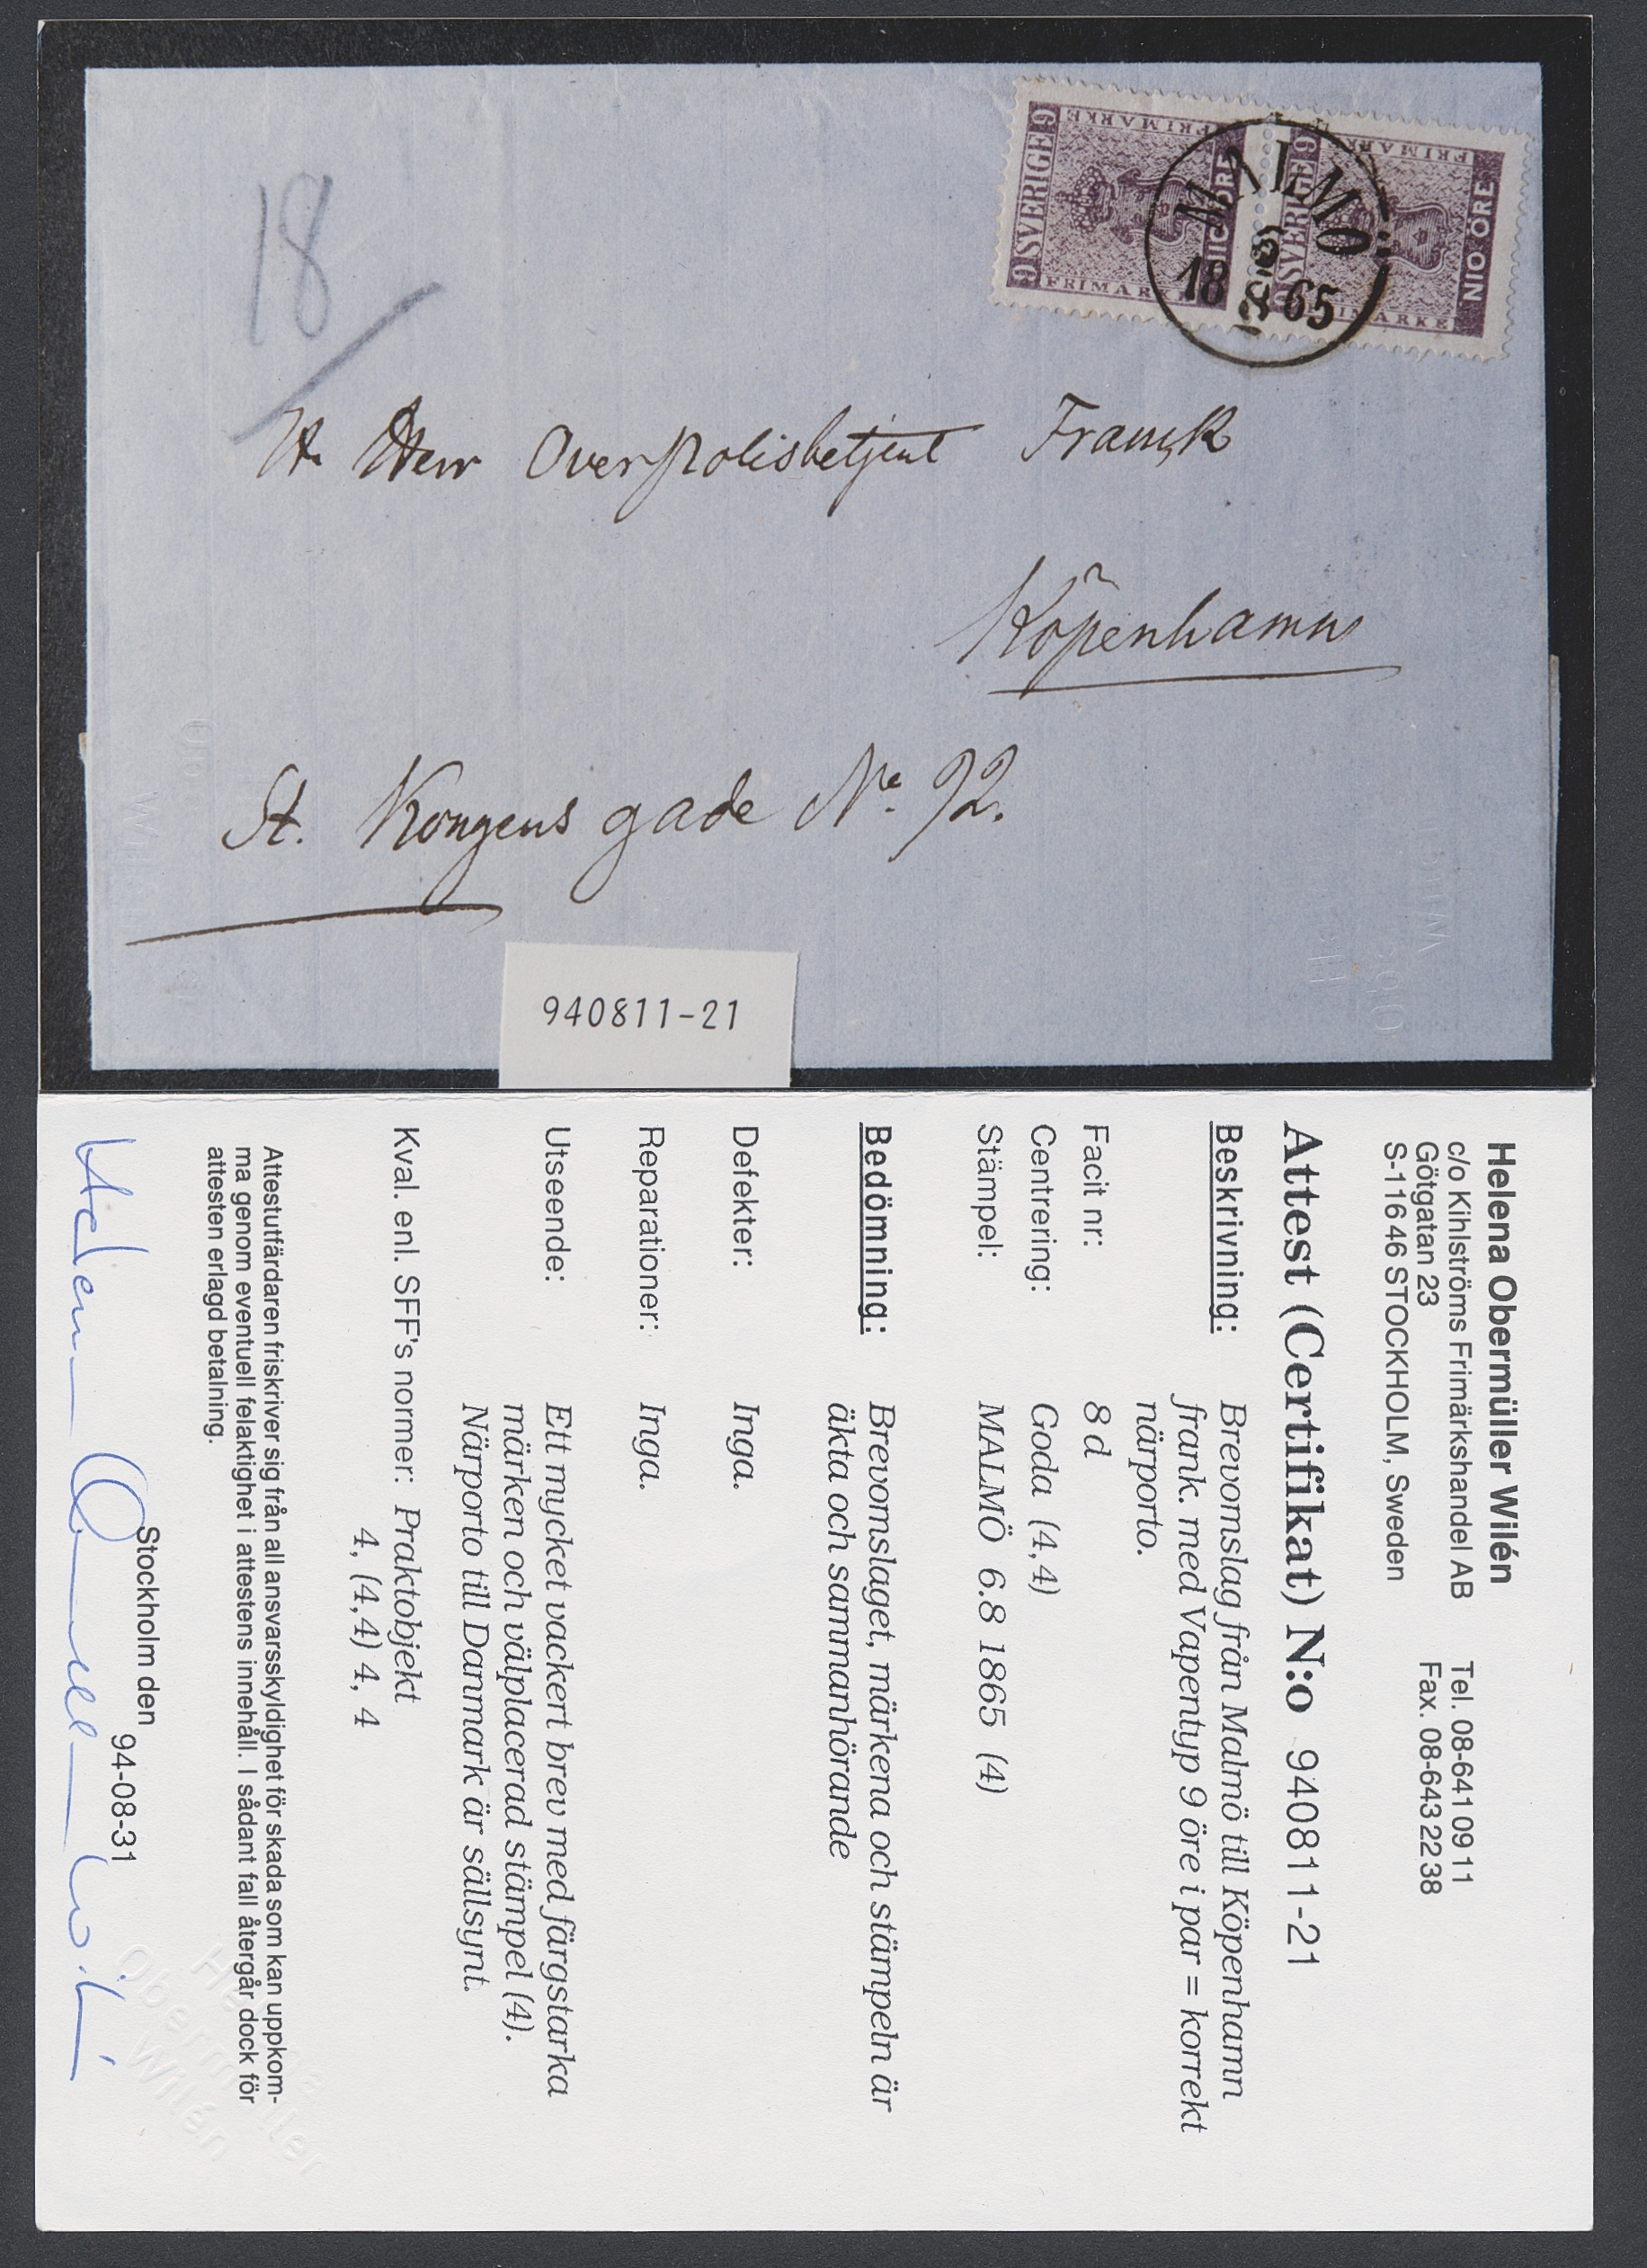 18
SVERIGE
9 9
FRIMÄRKE
FRIMÄRKE
NIO ÖRE
SVERIGE
9
FRIMÄRKE
FRIMÄRKE
NIO ÖRE
MALMÖ
18 65
6
8
Herr Overpolisbetjent Franck
Köpenhamn
St. Kongens gade No. 92.
940811-21
Helena Obermüller Wilén
c/o Kihlströms Frimärkshandel AB Tel. 08-641 09 11
Götgatan 23 Fax. 08-643 22 38
S-116 46 STOCKHOLM, Sweden
Attest (Certifikat) N:o 940811-21
Beskrivning: Brevomslag från Malmö till Köpenhamn
frank. med Vapentyp 9 öre i par = korrekt
närporto.
Facit nr: 8 d
Centrering: Goda (4,4)
Stämpel: MALMÖ 6.8 1865 (4)
Bedömning: Brevomslaget, märkena och stämpeln är
äkta och sammanhörande
Defekter: Inga.
Reparationer: Inga.
Utseende: Ett mycket vackert brev med färgstarka
märken och välplacerad stämpel (4).
Närporto till Danmark är sällsynt.
Kval. enl. SFF's normer: Praktobjekt
4, (4,4) 4, 4
Attestutfärdaren friskriver sig från all ansvarsskyldighet för skada som kan uppkom-
ma genom eventuell felaktighet i attestens innehåll. I sådant fall återgår dock för
attesten erlagd betalning.
Stockholm den 94-08-31
Helena Obermüller Wilén
Helena
Obermüller
Wilén